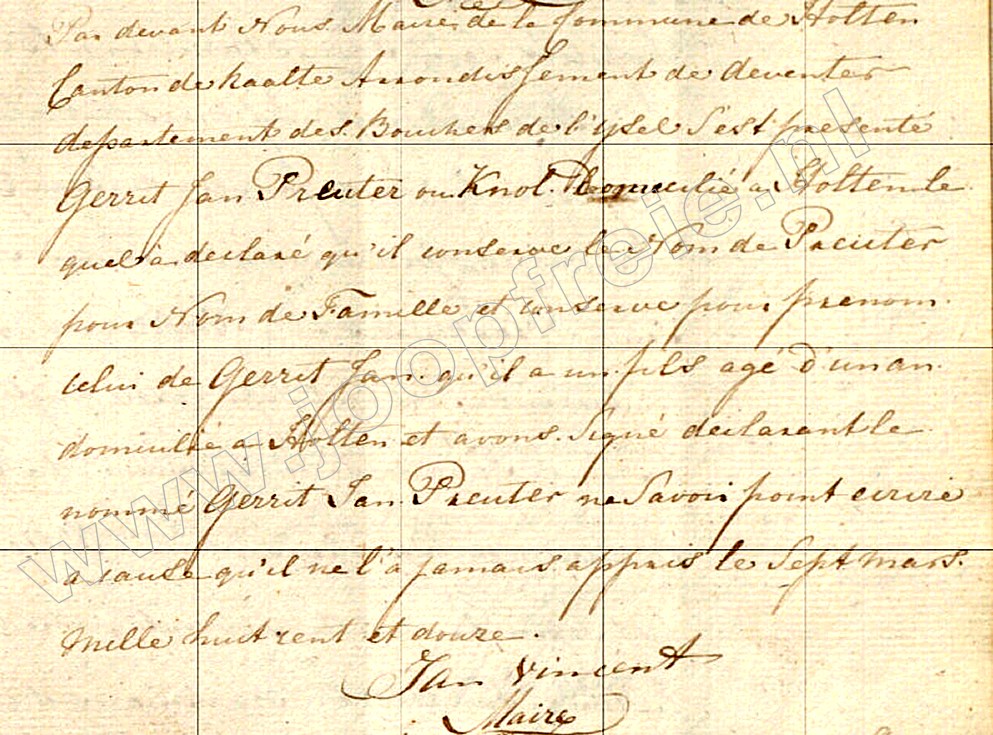 Par devant Nous Maire de la Commune de Holten
Canton de Raalte Arrondissement de deventer
departement des Bouches de l'ysel S'est presenté
Gerrit Jan Preuter ou Knol. Domicilié a Holten le
quel à declaré qu'il conserve le Nom de Preuter
pour Nom de Famille et conserve pour prenom.
celui de Gerrit Jan. qu'il a un fils agé d'un an.
domicilié a Holten et avons Signé declarant le
nommé Gerrit Jan Preuter ne Savoir point ecrire
a cause qu'il ne l'a jamais appris le Sept mars.
Mille huit cent et douze.
Jan Vincent
Maire
www.joopfreie.nl